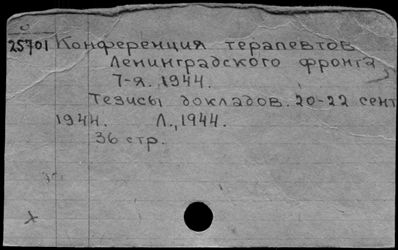 25701 Конференция терапевтов
Ленинградского фронта
7-я. 1944.
Тезисы докладов. 20-22 сент
1944. Л., 1944.
36 стр.